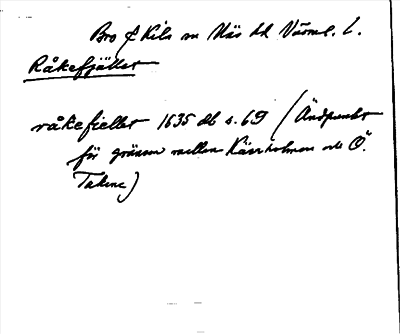 Bro & Kila sn Näs hd Värml. l.
Råkefjället
råkefiellet 1635 db s. 69 (Ändpunkt
för gränsen mellan Kärrholmen och Ö.
Takene)